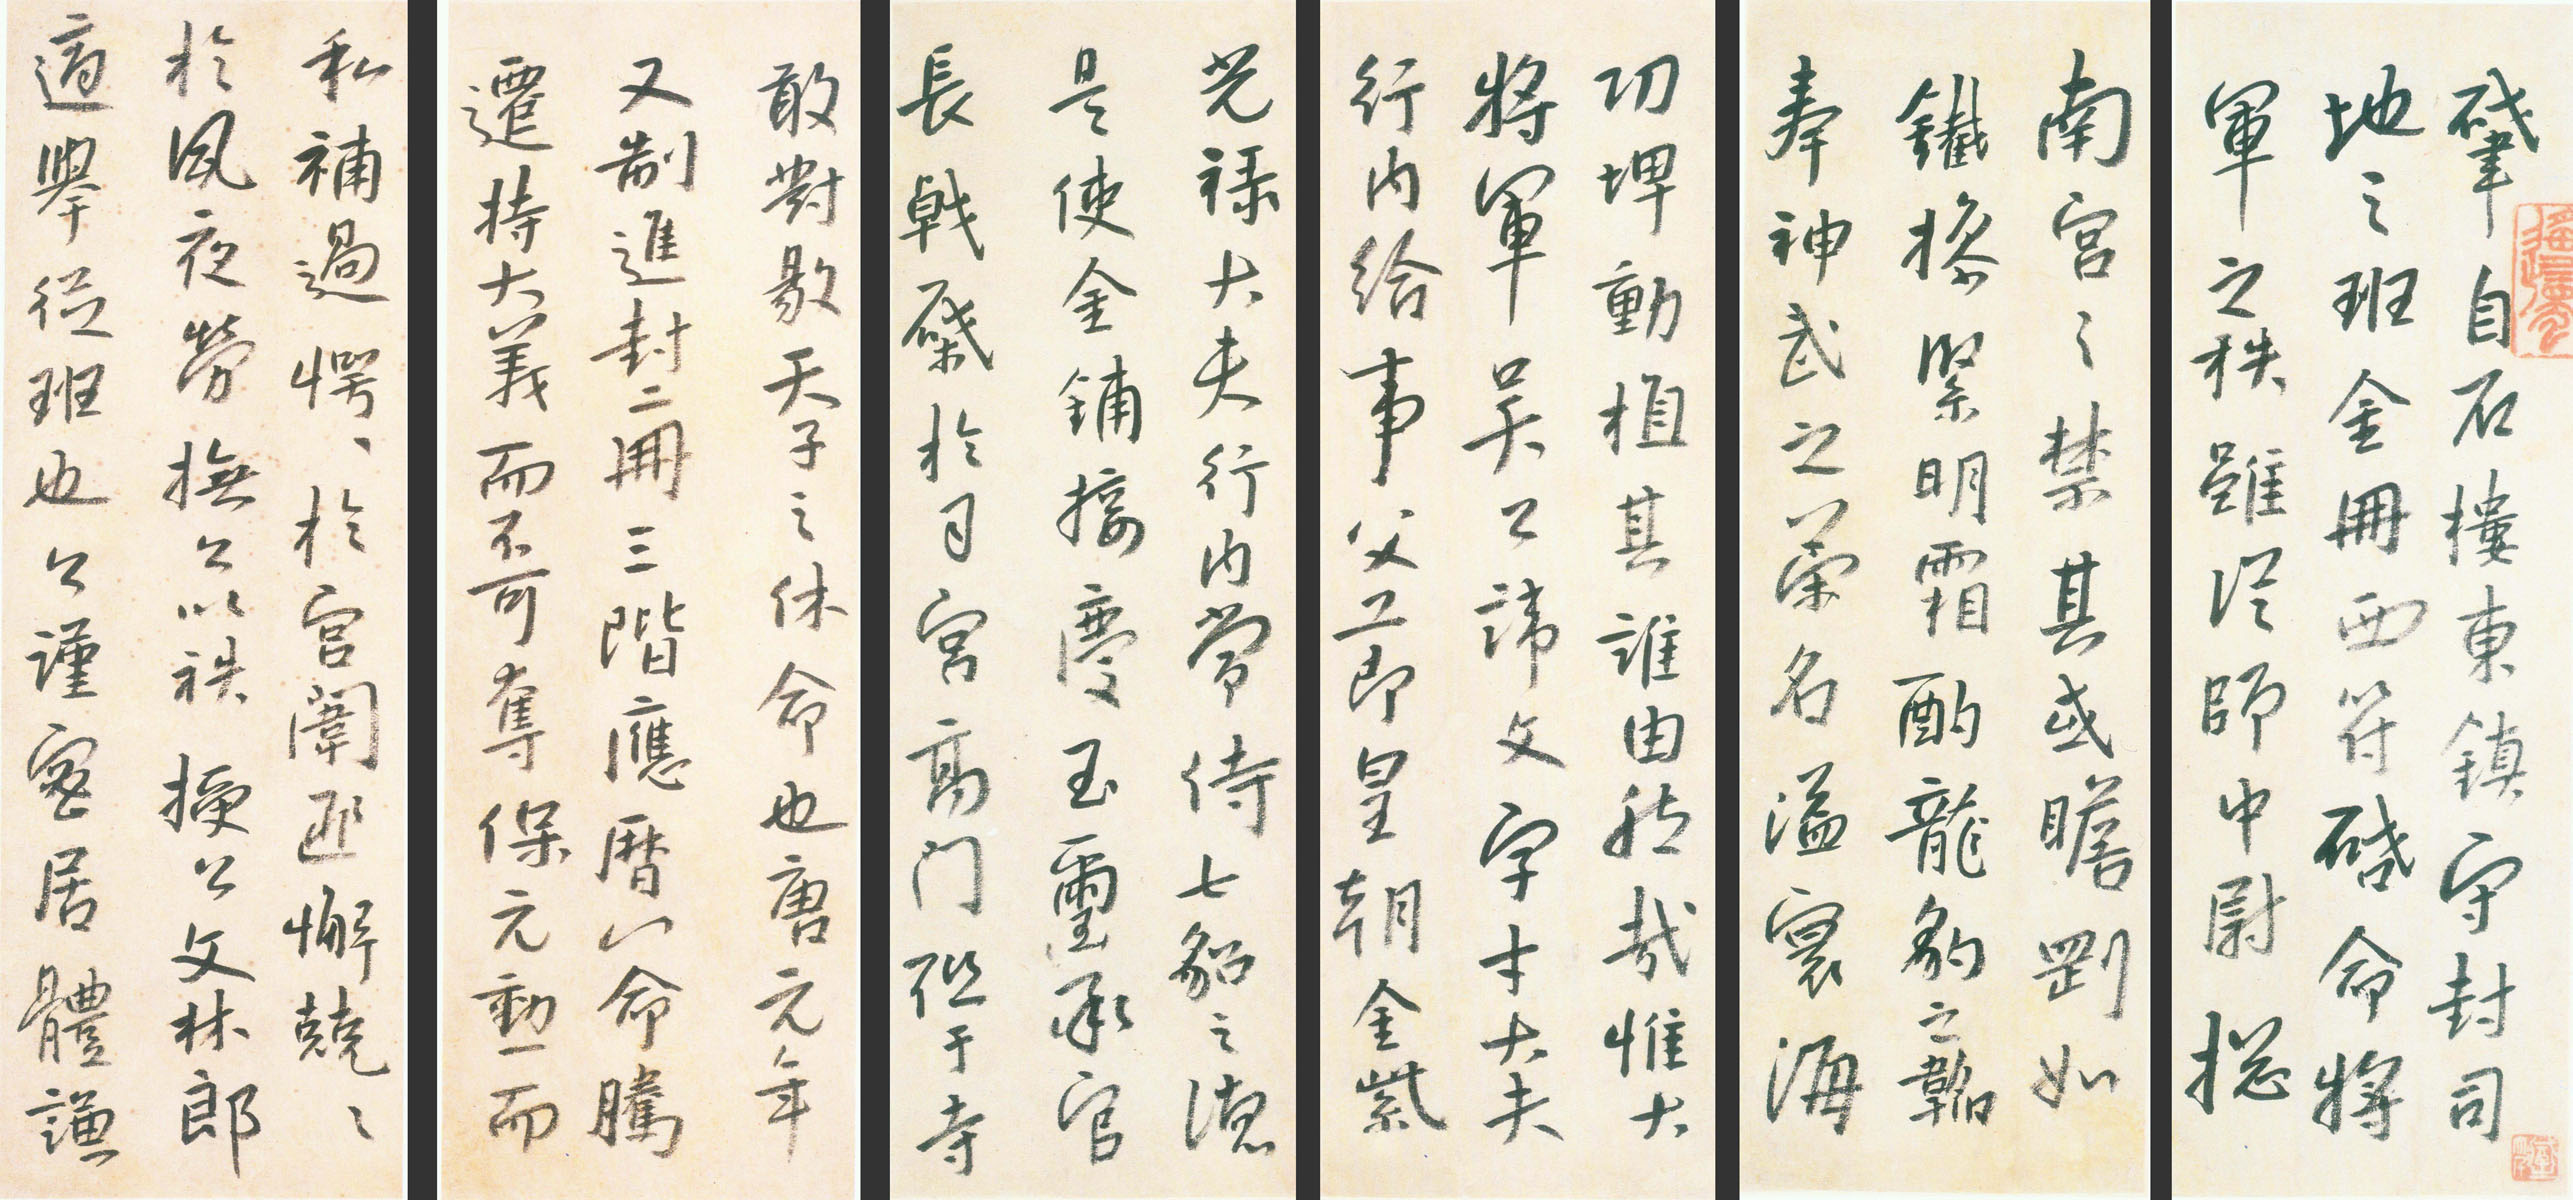 肇自石樓東鎮守封司
地之班金冊西符啓命將
軍之秩雖從師中尉揔
南宮之禁其或瞻剛如
鐵操緊明霜酌龍豹之韜
奉神武之榮名溢寰海
功埤動植其誰由然哉惟大
將軍吳公諱文字才大夫
行內給事父節皇朝金紫
光祿大夫行內常侍七貂之德
是使金鋪接慶玉璽承官
長戟棨於司宮高門祉于寺
敢對敭天子之休命也唐元年
又制進封二冊三階應曆八命騰
遷持大義而不可奪保元勳而
私補過愕〻於宮闈匪懈兢〻
於夙夜勞撫公以袟授公文林郎
適舉從班也公謹密居體謙